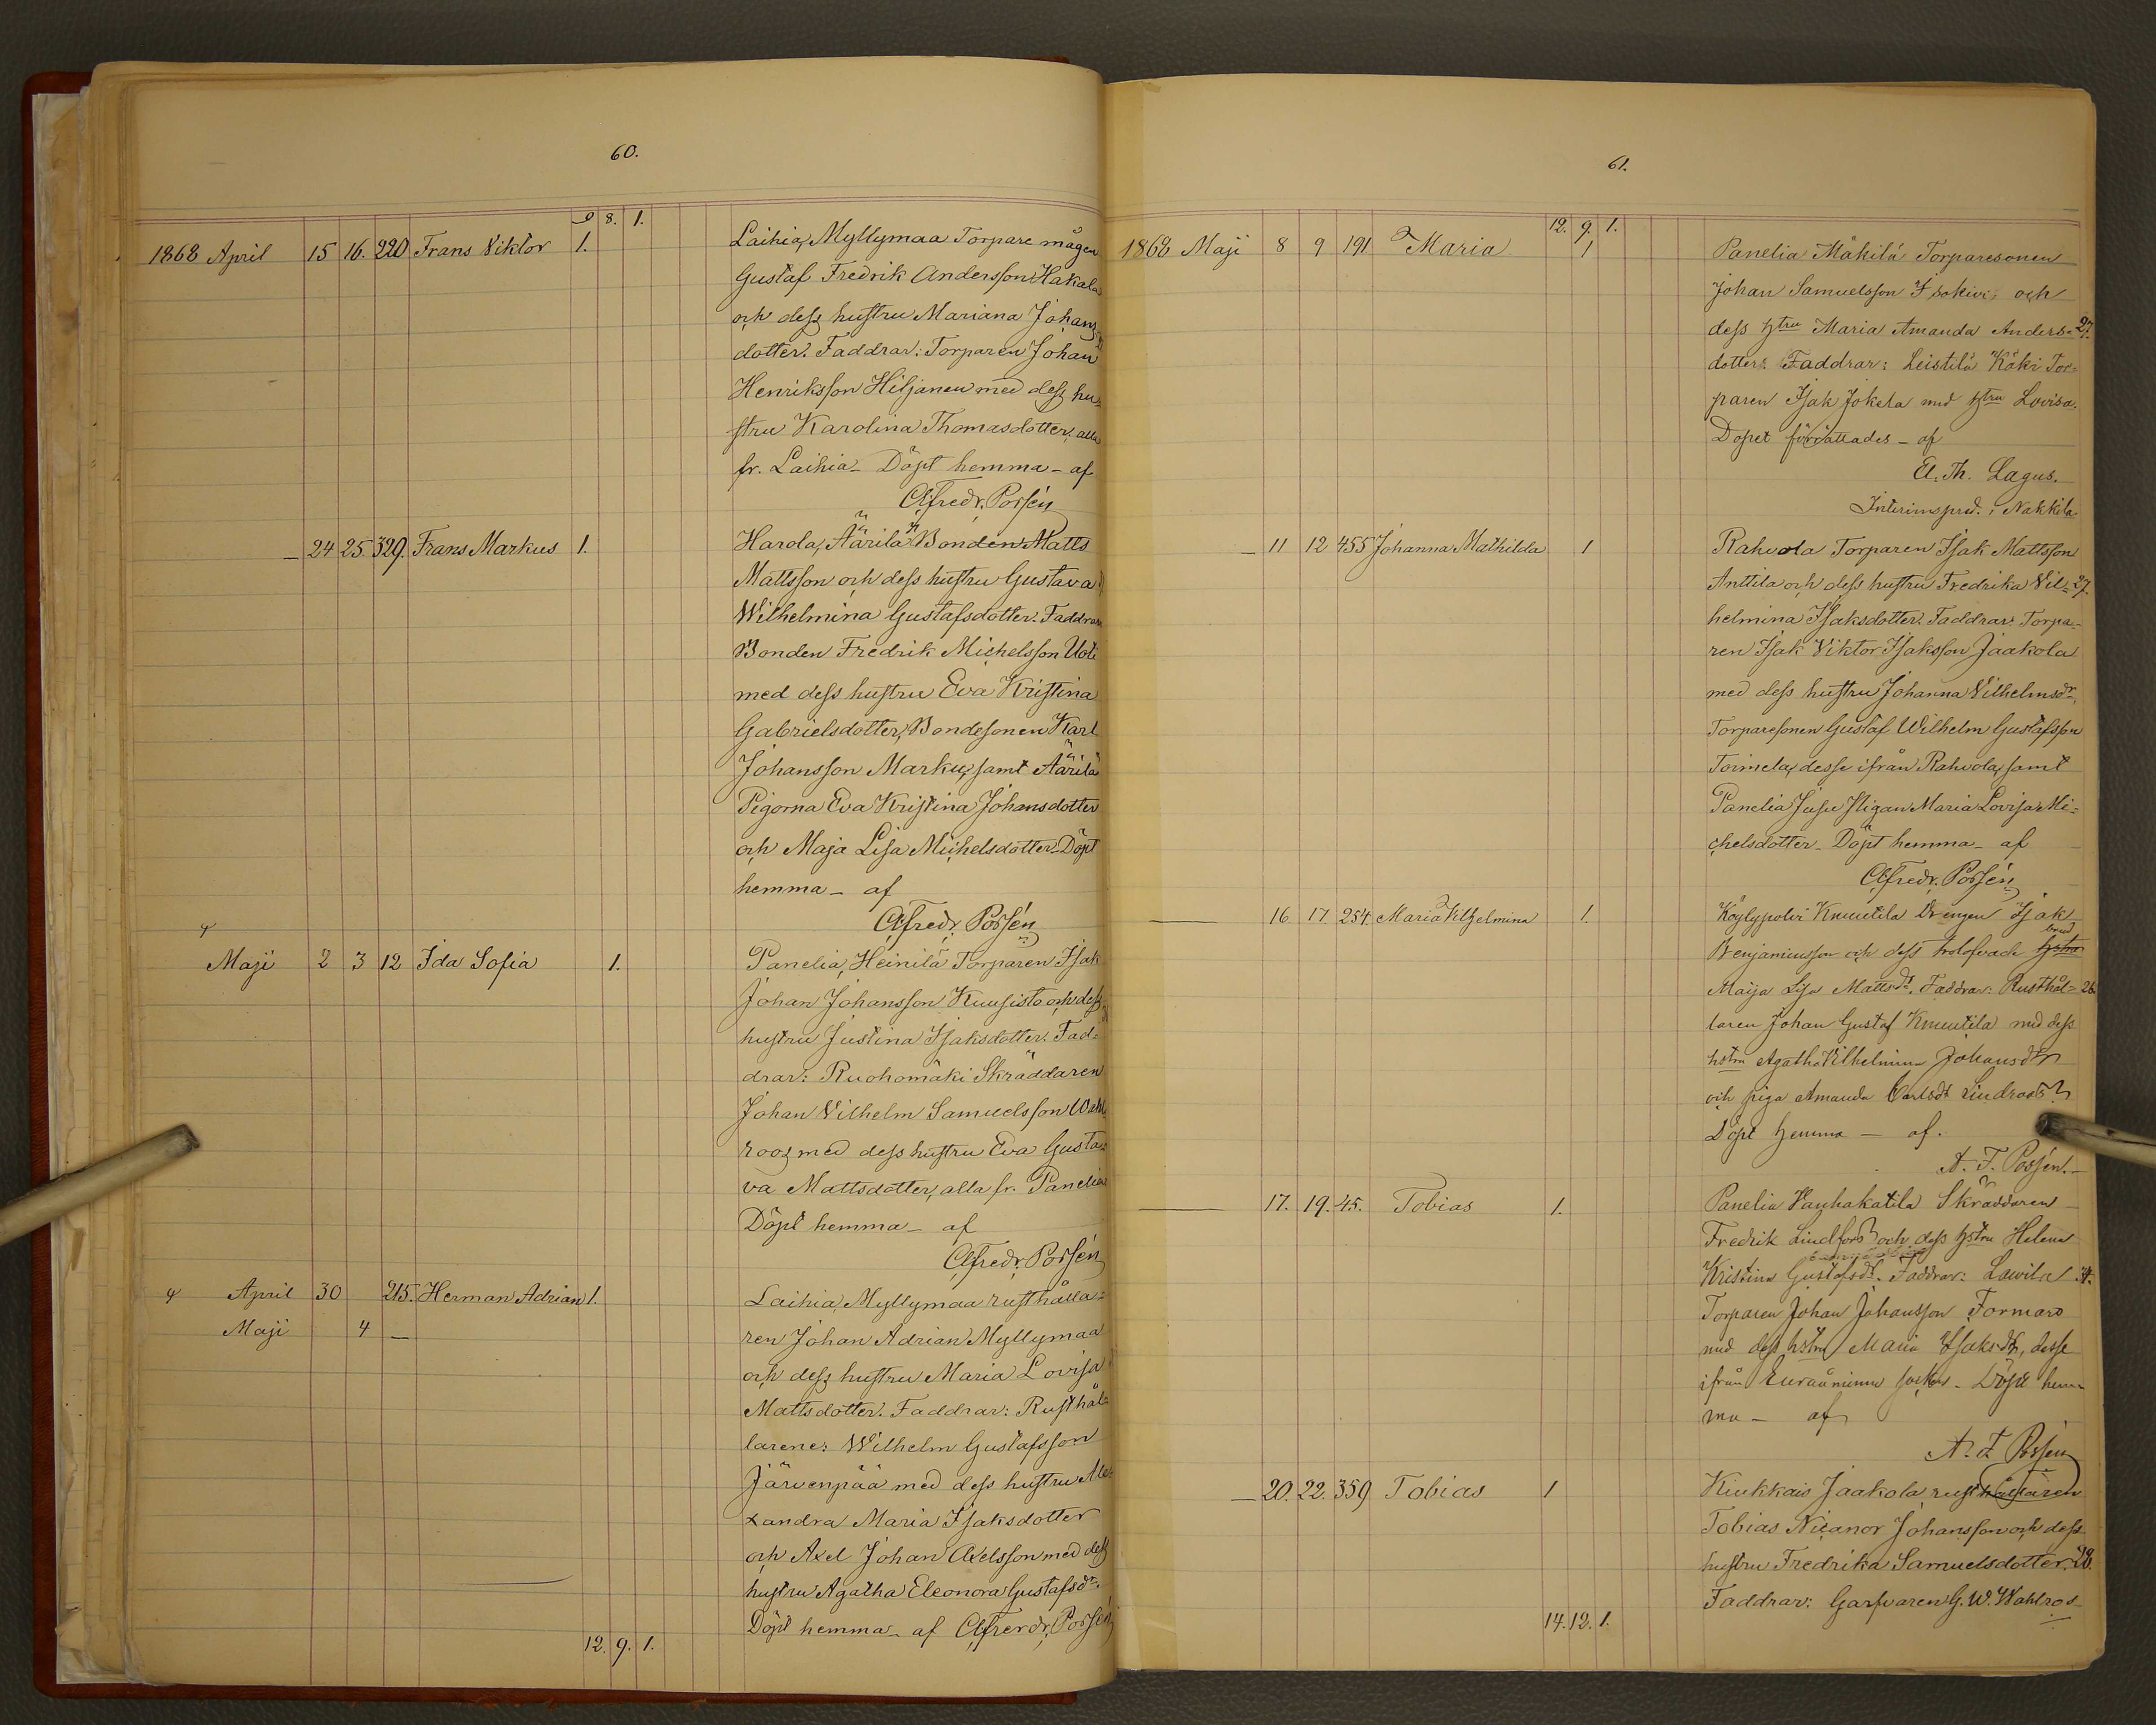 60.
9 8. 1.
1868 April 15 16. 220 Frans Viktor 1. Laihia, Myllymaa Torpare mågen
Gustaf Fredrik Andersson Hakala
och dess hustru Mariana Johans
dotter. Faddrar: Torparen Johan
Henriksson Hiljanen med dess hu-
stru Karolina Thomasdotter, alla
fr. Laihia - Döpt hemma - af
Alfredr. Possén
— 24 25 329. Frans Markus 1. Harola, Äärilä Bonden Matts
Mattsson och dess hustru Gustava
Wilhelmina Gustafsdotter. Faddrar
Bonden Fredrik Michelsson Uoti
med dess hustru Eva Kristina
Gabrielsdotter, Bondesonen Karl
Johansson Marku, samt Äärilä
Pigorna Eva Kristina Johansdotter
och Maja Lisa Michelsdotter - Döpt
hemma - af
Alfredr. Possén
Maji 2 3 12 Ida Sofia 1. Panelia, Heinilä Torparen Isak
Johan Johansson Kuusisto och dess
hustru Justina Isaksdotter. Fad-
drar: Ruohomäki Skräddaren
Johan Vilhelm Samuelsson Wahl
roos med dess hustru Eva Gusta-
va Mattsdotter, alla fr. Panelia
Döpt hemma - af
Alfredr. Possén
April 30 215. Herman Adrian 1. Laihia, Myllymaa rusthålla-
Maji 4 — ren Johan Adrian Myllymaa
och dess hustru Maria Lovisa
Mattsdotter. Faddrar: Rusthål-
larene: Wilhelm Gustafsson
Järvenpää med dess hustru Ale-
xandra Maria Isaksdotter
och Axel Johan Axelsson med dess
hustru Agatha Eleonora Gustafsdr.
Döpt hemma - af Alfredr. Possén
12. 9. 1.
61.
12. 9. 1.
1868 Maji 8 9 191 Maria 1 Panelia Mäkilä Torparesonen
Johan Samuelsson Isokivi och
dess hstru Maria Amanda Anders- 27.
dotter: Faddrar: Leistilä Köki Tor-
paren Isak Jokela med hstru Lovisa.
Dopet förrättades - af
El. Th. Lagus.
Interimspred. i Nakkila
— 11 12 455 Johanna Mathilda 1 Rahvola Torparen Isak Mattsson
Anttila och dess hustru Fredrika Vil- 27.
helmina Isaksdotter. Faddrar: Torpa-
ren Isak Viktor Isaksson Jaakola
med dess hustru Johanna Vilhelmsdr.,
Torparesonen Gustaf Wilhelm Gustafsson
Toimela, desse ifrån Rahvola, samt
Panelia Maria Lovisa Mi-
chelsdotter - Döpt hemma - af
Alfredr. Possén
— 16 17. 254. Maria Vilhelmina 1. Köylypolvi Knuutila Drengen Isak
brud
Benjaminsson och dess trolofvade hstru
Maija Lisa Mattsdr. Faddrar: Rusthål- 28.
laren Johan Gustaf Knuutila med dess
hstru Agatha Vilhelmina Johansdr
och piga Amanda Carlsdr Lindroos
Döpt hemma — af.
A. F. Possén.
— 17. 19. 45. Tobias 1. Panelia Vanhakatila Skräddaren
Fredrik Lindfors och dess hstru Helena
Kristina Gustafsdr. Faddrar: Lawila
Torparen Johan Johansson Formars
med dess hstru Maria Isaksdr, desse
ifrån Euraåminne socken - Döpt hem-
ma - af
A. F. Possén
— 20. 22. 359 Tobias 1 Kiukkais Jaakola rusthållaren
Tobias Nicanor Johansson och dess
hustru Fredrika Samuelsdotter. 28.
Faddrar: Garfvaren G. W. Wahlros
14. 12. 1.